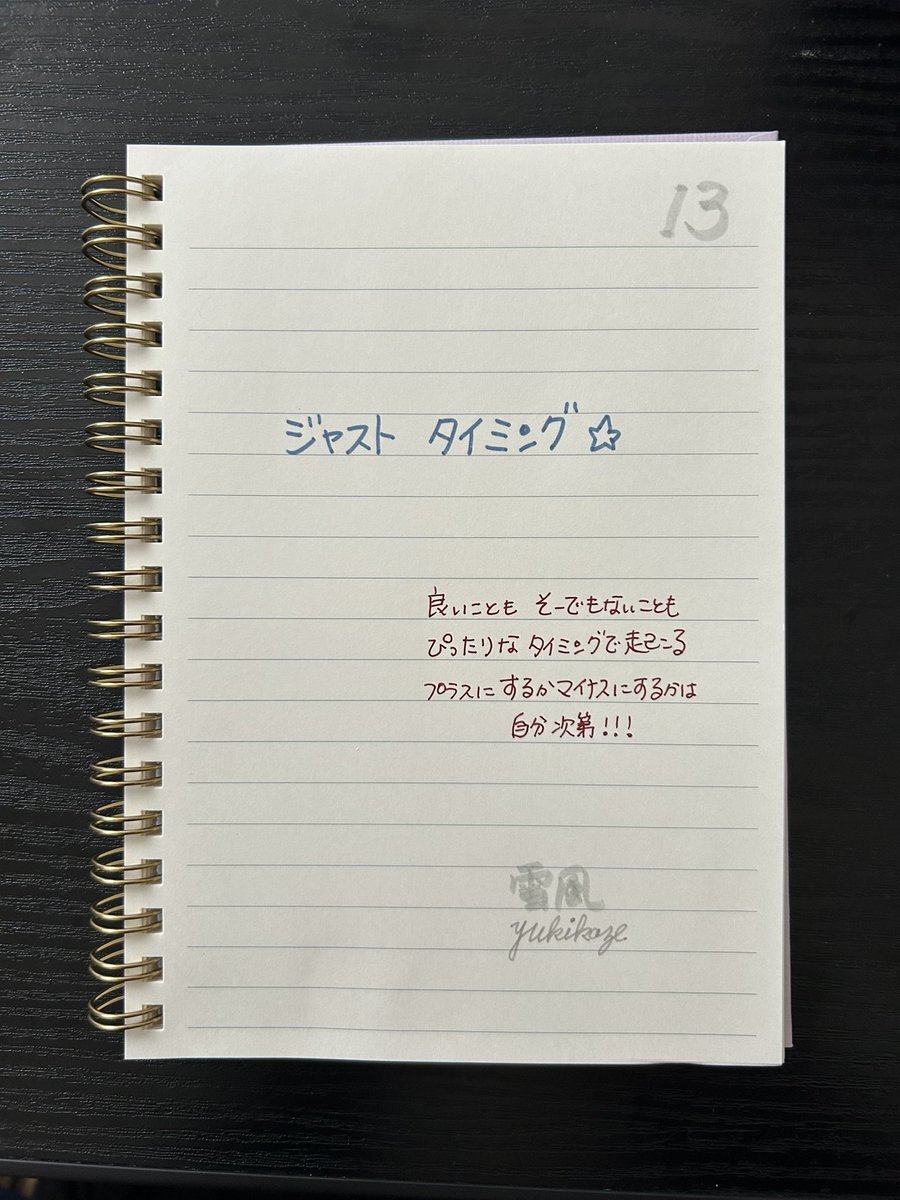 13
ジャスト タイミング☆
良いことも そーでもないことも
ぴったりな タイミングで起こる
プラスにするかマイナスにするかは
自分次第!!!
雪風
yukikaze